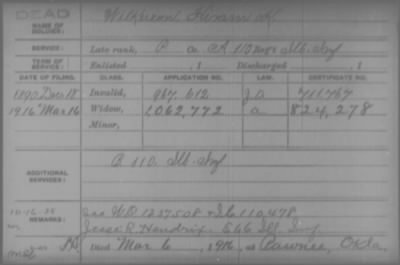 DEAD
NAME OF SOLDIER: Wilkerson, Hiram K.
SERVICE: Late rank, P Co. A, 110 Reg't Ill. Inf
TERM OF SERVICE: Enlisted , 1 Discharged , 1
DATE OF FILING. CLASS. APPLICATION NO. LAW. CERTIFICATE NO.
1890 Dec 18 Invalid, 967,612 711,767
1916 Mar 16 Widow, 1,062,772 a 824,278
Minor,
ADDITIONAL SERVICES: 110. Ill. Inf
10-16-25
REMARKS: 1237508
Jesse R. Hendrix. Ill. Inf.
Died Mar 6, 1916, at Pawnee, Okla.